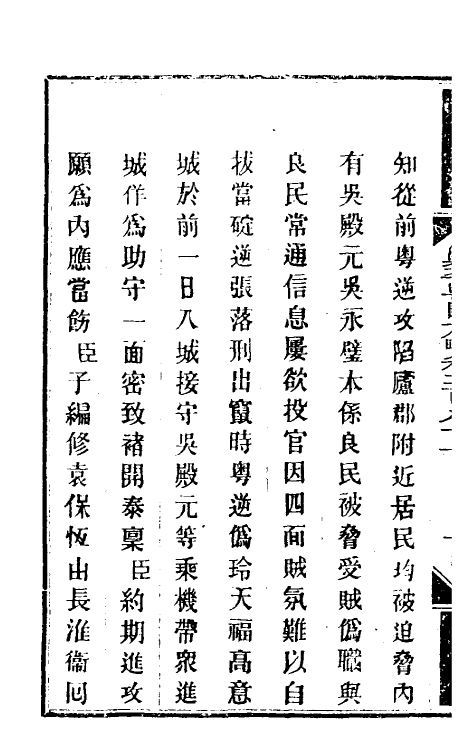 知從前粤逆攻陷廬郡附近居民均被迫脅內
有吳殿元吳永璧本係良民被脅受賊僞職與
良民常通信息屢欲投官因四面賊氛難以自
拔當碇逆張落刑出竄時粤逆僞玲天福高意
城於前一日入城接守吳殿元等乘機帶衆進
城佯爲助守一面密致褚開泰稟臣約期進攻
願爲內應當飭臣子編修袁保恆由長淮衞囘